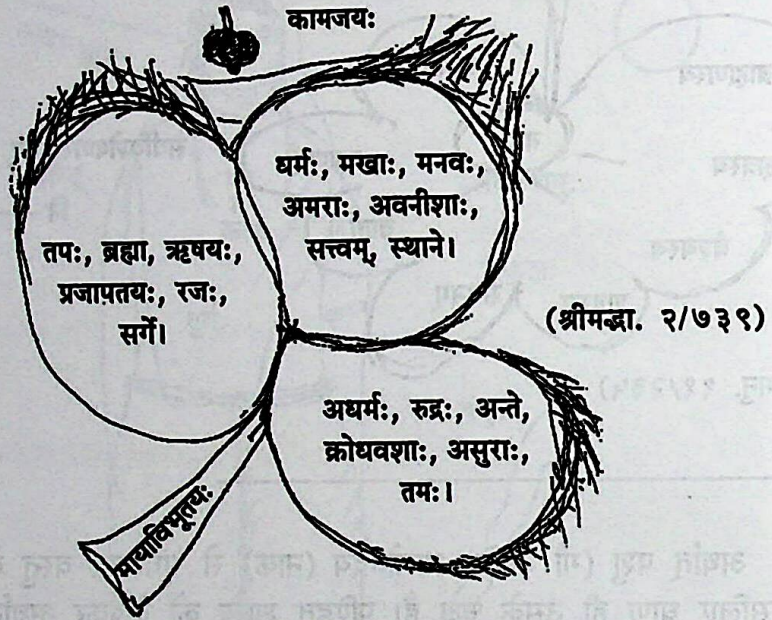 कामजयः
धर्मः, मखाः, मनवः,
अमराः, अवनीशाः,
सत्त्वम्, स्थाने।
तपः, ब्रह्मा, ऋषयः,
प्रजापतयः, रजः,
सर्गे।
(श्रीमद्भा. २/७३९)
अधर्मः, रुद्रः, अन्ते,
क्रोधवशाः, असुराः,
तमः।
मायाविभूतयः